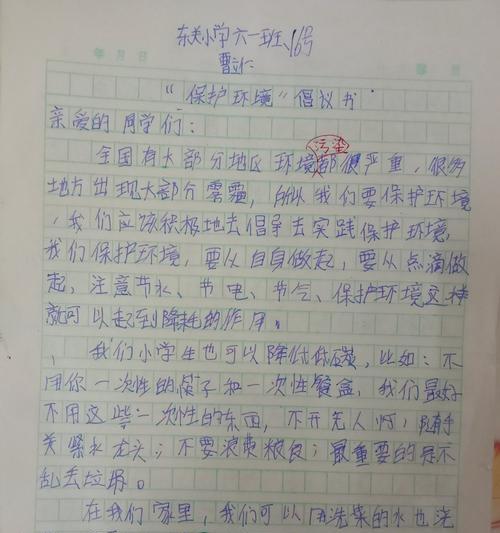 东关小学六一班、16号
曹
年 月 日
"保护环境"倡议书
亲爱的同学们：
污染
全国有大部分地区环境都很严重，很多
地方出现大部分雾霾，所以我们要保护环境
，我们应该积极地去倡导去实践保护环境，
我们保护环境，要从自身做起，要从点滴做
起，注意节水、节电、节气、保护环境这样
就可以起到降耗的作用。
我们小学生也可以降低低碳，比如：不
用你一次性的筷子和一次性餐盒，我们最好
不用这些一次性的东西，不开无人灯，随手
关紧水龙头；不要浪费粮食；最重要的是不
乱丢垃圾。
在我们家里，我们可以用洗菜的水也浇